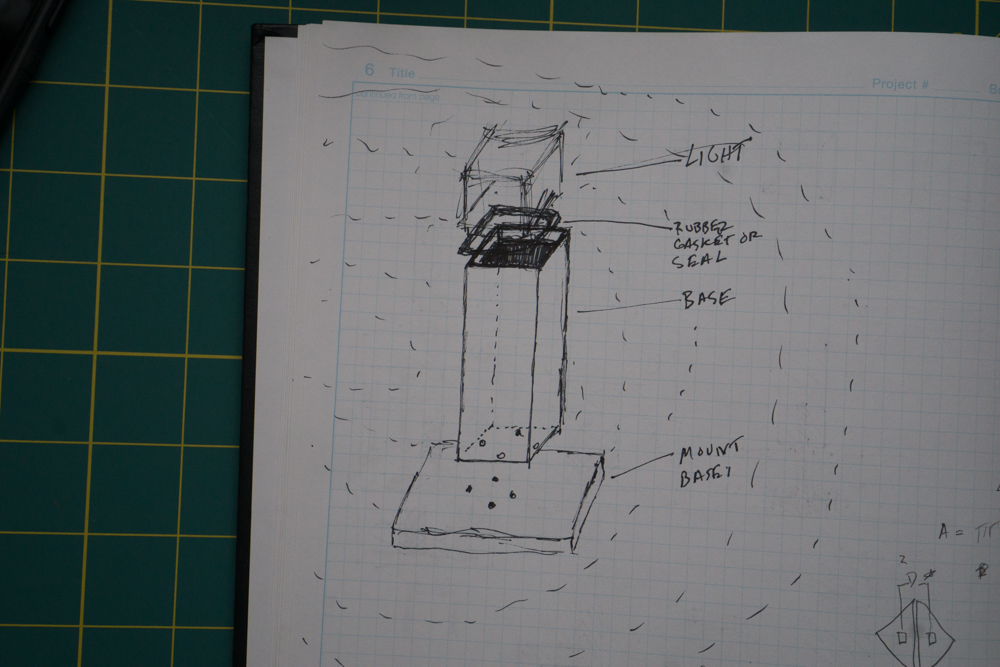 6 Title
Project #
continued from page
LIGHT
RUBBER
GASKET OR
SEAL
BASE
MOUNT
BASE?
A =
2